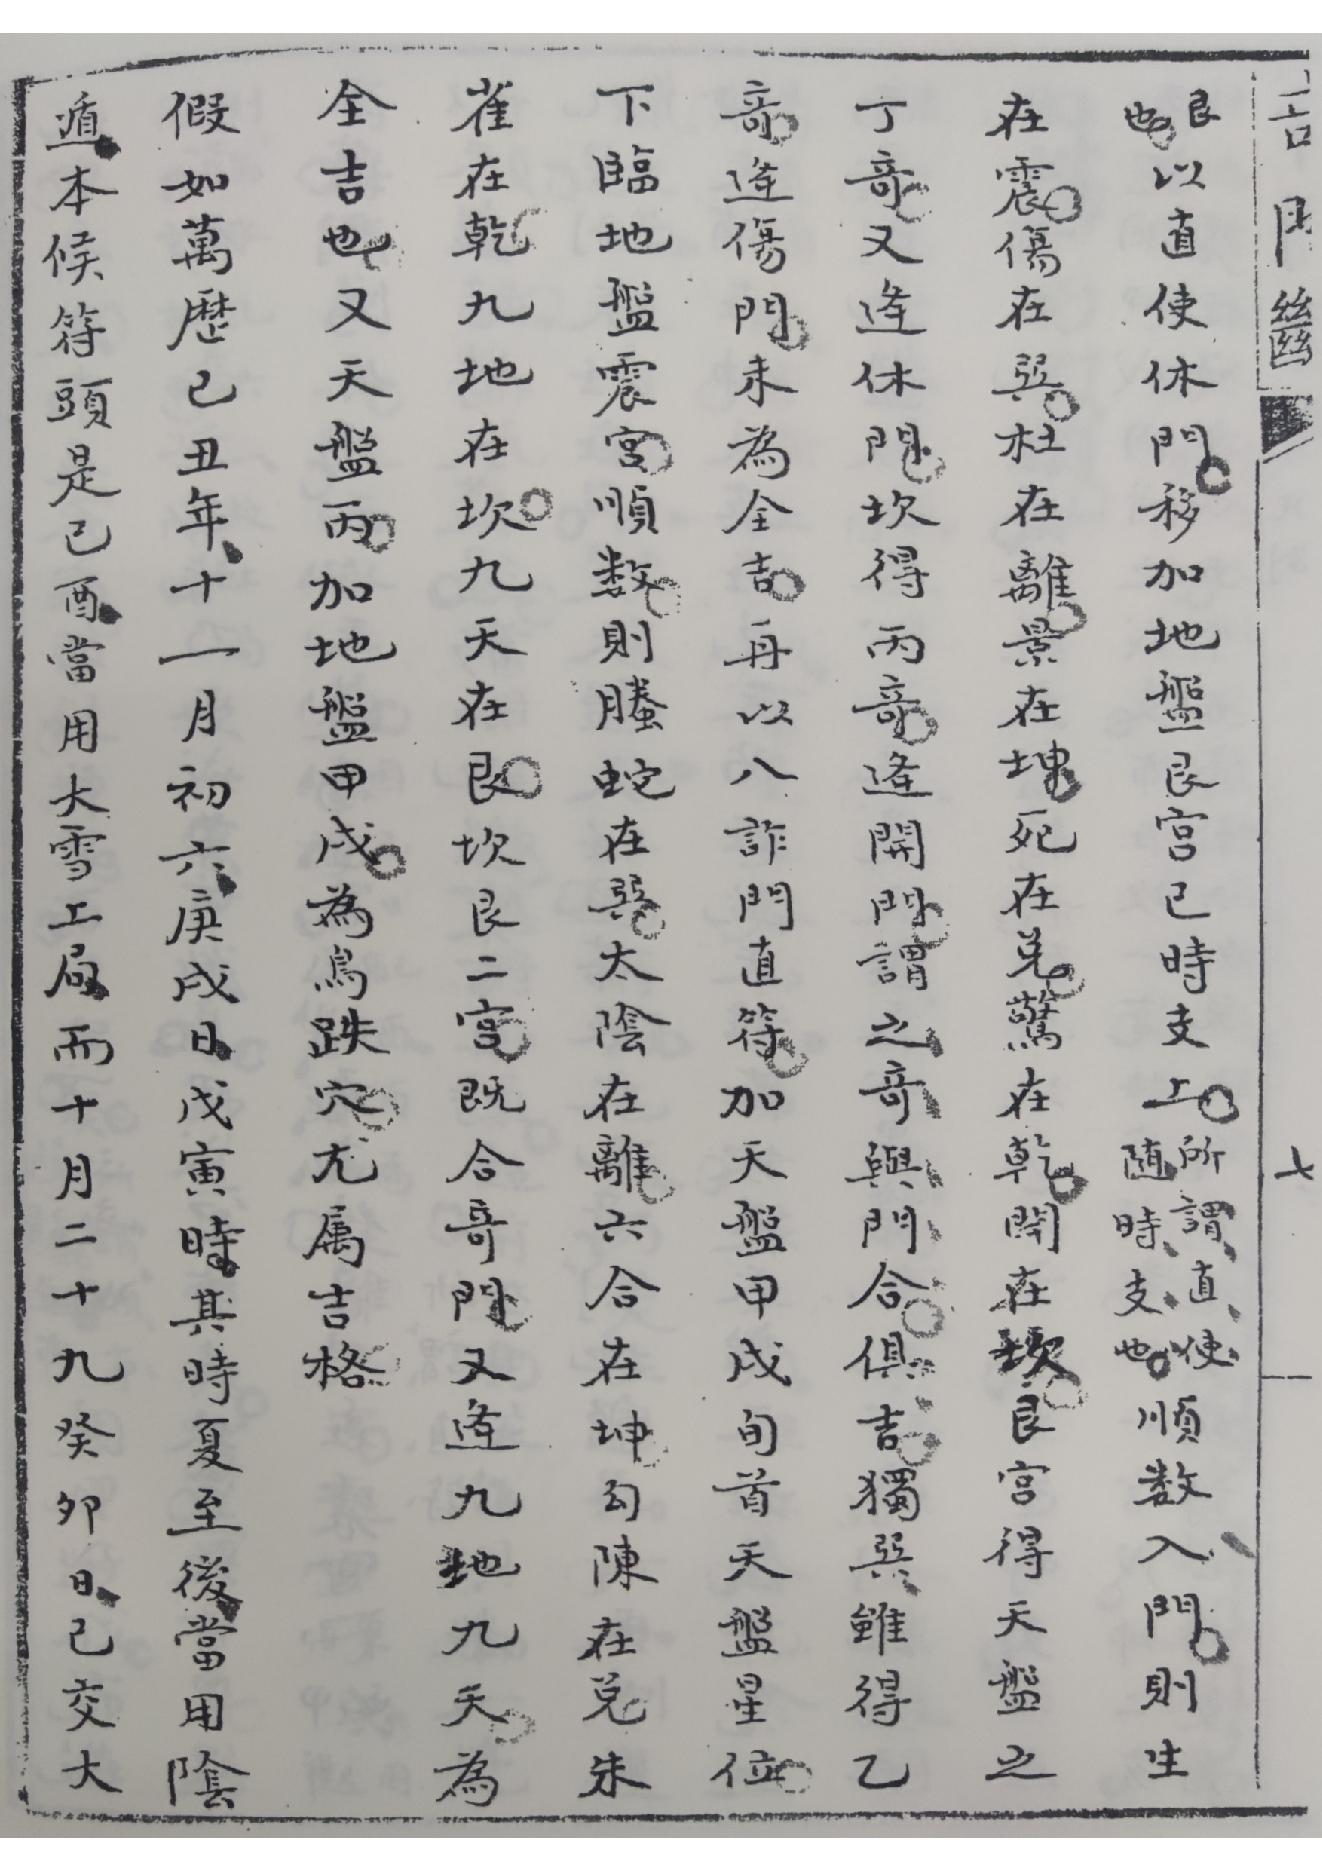 奇門齒 七
艮也以直使休門移加地盤艮宮巳時支上所謂直使随時支也順数入門則生
在震傷在巽杜在離景在坤死在兌驚在乾開在坎艮宮得天盤之
丁竒又逢休門坎得丙竒逢開門謂之竒與門合俱吉獨巽雖得乙
竒逢傷門未為全吉再以八詐門直符加天盤甲戌旬首天盤星位
下臨地盤震宮順数則螣蛇在巽太陰在離六合在坤勾陳在兌朱
雀在乾九地在坎九天在艮坎艮二宮既合竒門又逢九地九天為
全吉也又天盤丙加地盤甲戌為鳥跌穴尤属吉格
假如萬歷己丑年十一月初六庚戌日戊寅時其時夏至後當用陰
遁本候符頭是己酉當用大雪上局而十月二十九癸卯日已交大